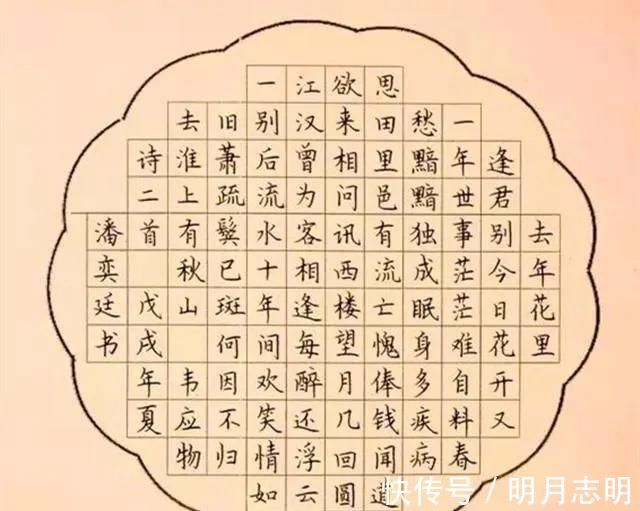 去年花里
逢君别今日花开又
一年世事茫茫难自料春
愁黯黯独成眠身多疾病
思田里邑有流亡愧俸钱闻道
欲来相问讯西楼望月几回圆
江汉曾为客相逢每醉还浮云
一别后流水十年间欢笑情如
旧萧疏鬓已斑何因不归
去淮上有秋山 韦应物
诗二首 戊戌年夏
潘奕廷书
快传号 / 明月志明